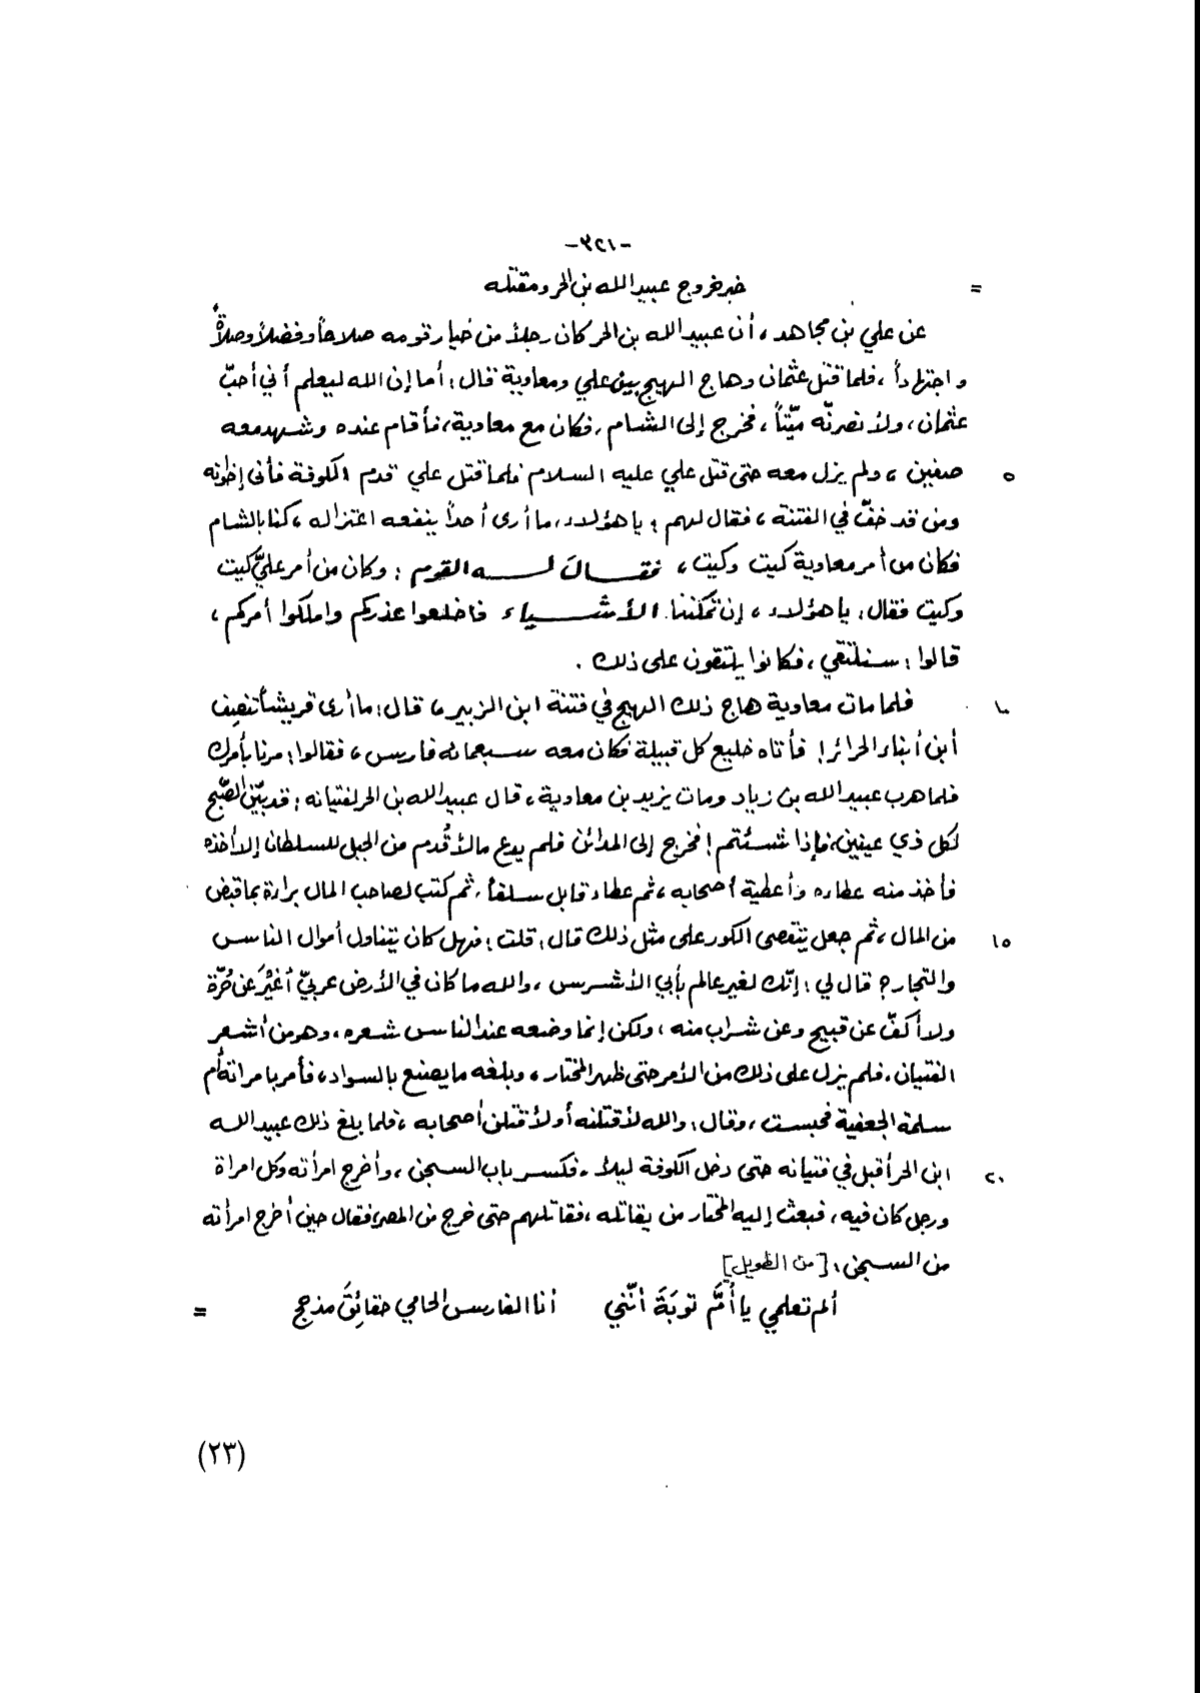 -٣٢١-
= خبر خروج عبيد الله بن الحر ومقتله
عن علي بن مجاهد، أن عبيد الله بن الحر كان رجلاً من خيار قومه صلاحاً وفضلاً وصلاةً
واجتهاداً، فلما قتل عثمان وهاج الهيج بين علي ومعاوية قال: أما إن الله ليعلم أني أحبّ
عثمان، ولأنصرنّه ميّتاً، فخرج إلى الشام، فكان مع معاوية، فأقام عنده وشهد معه
٥ صفين، ولم يزل معه حتى قتل علي عليه السلام فلما قتل علي قدم الكوفة فأتى إخوانه
ومن قد خفّ في الفتنة، فقال لهم: يا هؤلاء، ما أرى أحداً ينفعه اعتزاله، كنا بالشام
فكان من أمر معاوية كيت وكيت، فقال له القوم: وكان من أمر عليّ كيت
وكيت فقال: يا هؤلاء، إن تمكننا الأشياء فاخلعوا عذركم واملكوا أمركم،
قالوا: سنلتقي، فكانوا يلتقون على ذلك.
١٠ فلما مات معاوية هاج ذلك الهيج في فتنة ابن الزبير، قال: ما أرى قريشاً تنصِف
أين أبناء الحرائر! فأتاه خليع كل قبيلة فكان معه سبعمائة فارس، فقالوا: مرنا بأمرك
فلما هرب عبيد الله بن زياد ومات يزيد بن معاوية، قال عبيد الله بن الحر لفتيانه: قد بيّن الصّبح
لكل ذي عينين، فإذا شئتم! فخرج إلى المدائن فلم يدع مالاً قُدم من الجبل للسلطان إلا أخذه
فأخذ منه عطاءه وأعطية أصحابه، ثم عطاء قابل سلفاً، ثم كتب لصاحب المال براءة بما قبض
١٥ من المال، ثم جعل يتقصى الكور على مثل ذلك قال: قلت: فهل كان يتناول أموال الناس
والتجار؟ قال لي: إنّك لغير عالم بأبي الأشرس، والله ما كان في الأرض عربيّ أغْيَرَ عن حُرّة
ولا أكفّ عن قبيح وعن شراب منه، ولكن إنما وضعه عند الناس شعره، وهو من أشعر
الفتيان، فلم يزل على ذلك من الأمر حتى ظهر المختار، وبلغه ما يصنع بالسواد، فأمر بامرأته أم
سلمة الجعفية فحبست، وقال: والله لأقتلنه أو لأقتلن أصحابه، فلما بلغ ذلك عبيد الله
٢٠ ابن الحر أقبل في فتيانه حتى دخل الكوفة ليلاً، فكسر باب السجن، وأخرج امرأته وكل امرأة
ورجل كان فيه، فبعث إليه المختار من يقاتله، فقاتلهم حتى خرج من المصر، فقال حين أخرج امرأته
من السجن: [من الطويل]
ألم تعلمي يا أُمَّ توبَةَ أنّني أنا الفارس الحامي حقائِقَ مذحج =
(٢٣)